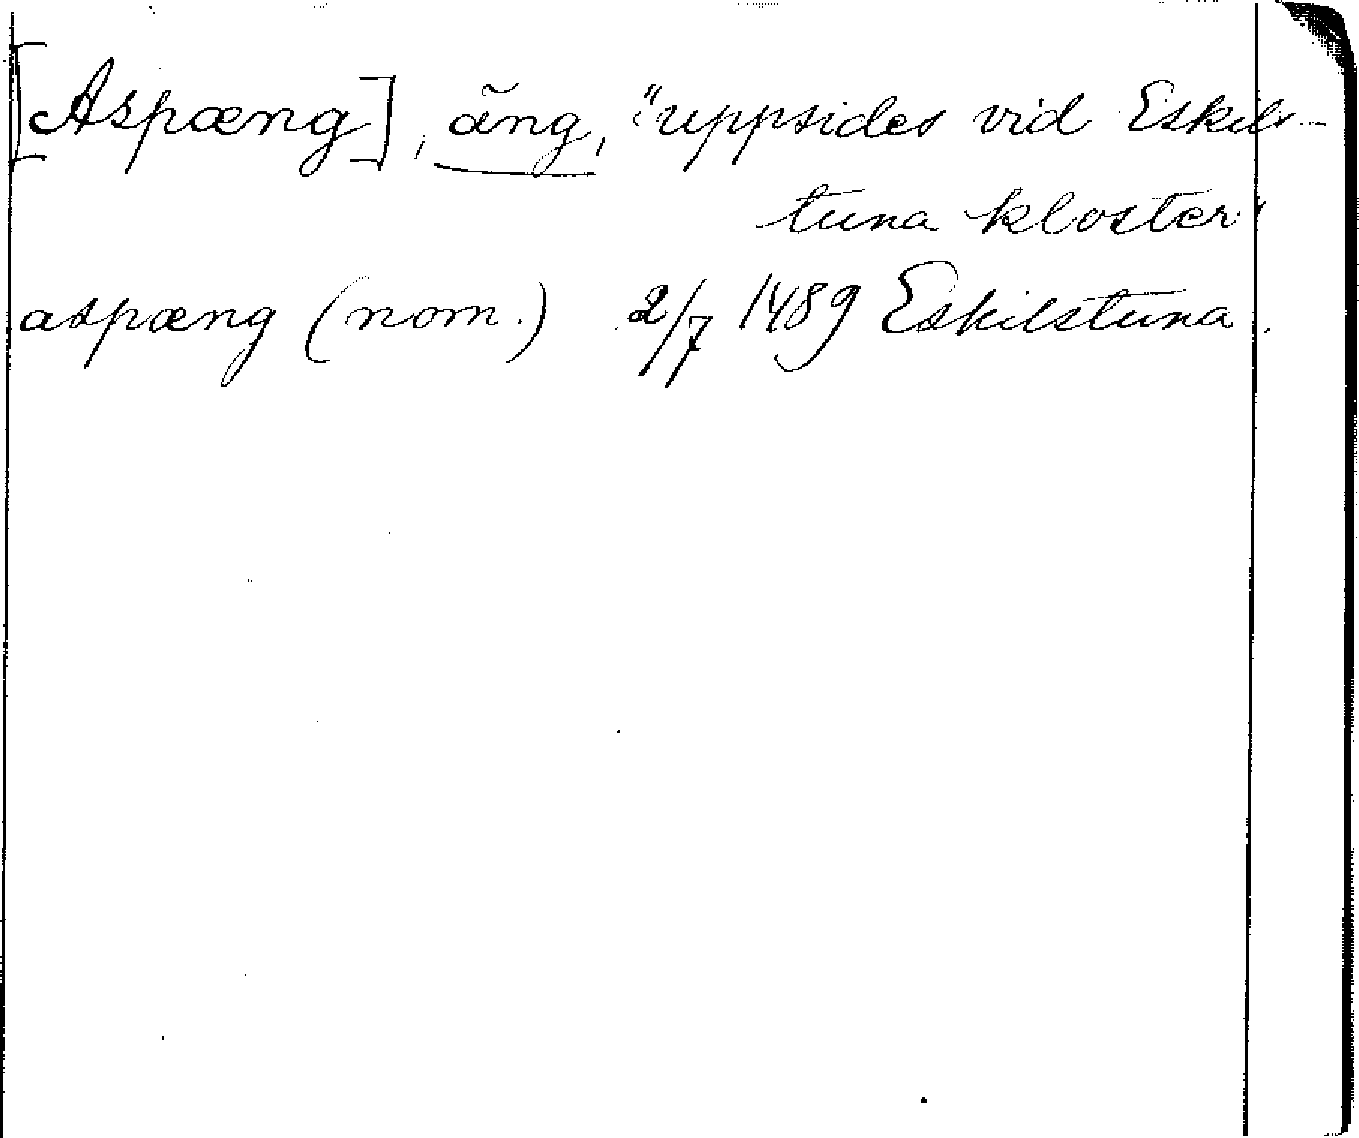 [Aspæng], äng, "uppsides vid Eskils-
tuna kloster"
aspæng (nom.) 2/7 1489 Eskilstuna.